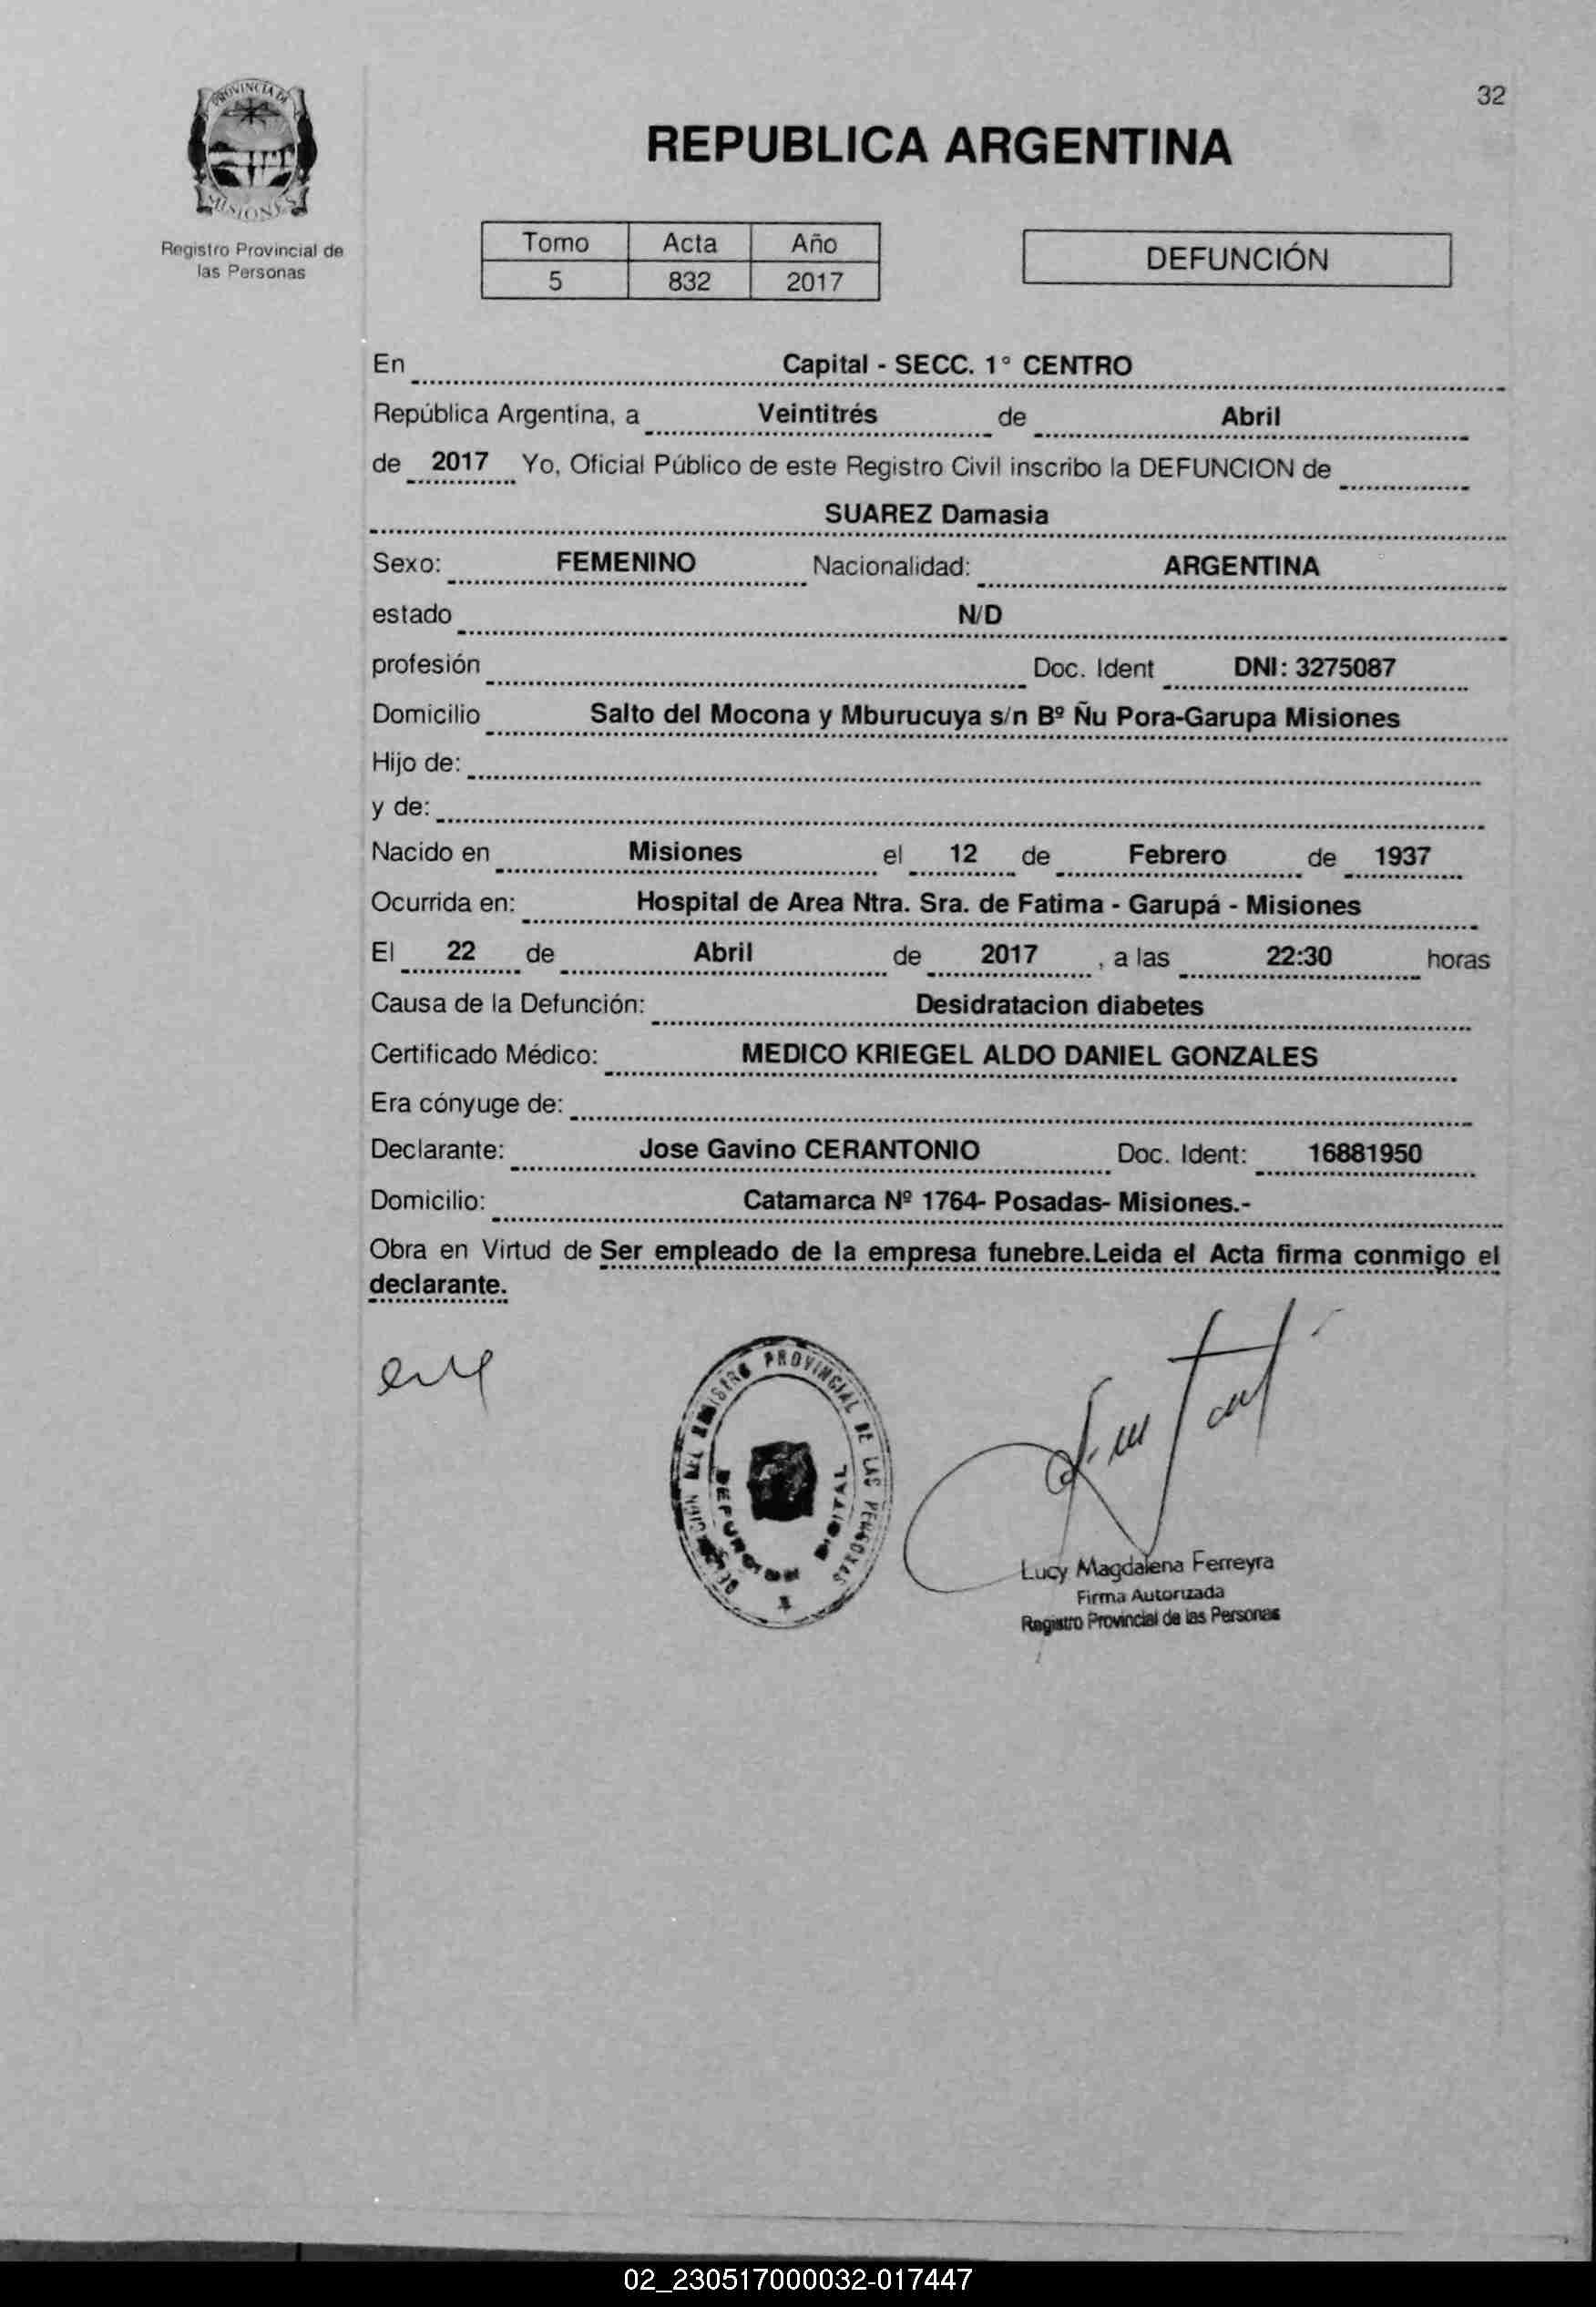 32
PROVINCIA DE
MISIONES
Registro Provincial de
las Personas
REPUBLICA ARGENTINA
Tomo Acta Año
5 832 2017
DEFUNCIÓN
En Capital - SECC. 1° CENTRO
República Argentina, a Veintitrés de Abril
de 2017 Yo, Oficial Público de este Registro Civil inscribo la DEFUNCION de
SUAREZ Damasia
Sexo: FEMENINO Nacionalidad: ARGENTINA
estado N/D
profesión Doc. Ident DNI: 3275087
Domicilio Salto del Mocona y Mburucuya s/n Bº Ñu Pora-Garupa Misiones
Hijo de:
y de:
Nacido en Misiones el 12 de Febrero de 1937
Ocurrida en: Hospital de Area Ntra. Sra. de Fatima - Garupá - Misiones
El 22 de Abril de 2017 , a las 22:30 horas
Causa de la Defunción: Desidratacion diabetes
Certificado Médico: MEDICO KRIEGEL ALDO DANIEL GONZALES
Era cónyuge de:
Declarante: Jose Gavino CERANTONIO Doc. Ident: 16881950
Domicilio: Catamarca Nº 1764- Posadas- Misiones.-
Obra en Virtud de Ser empleado de la empresa funebre.Leida el Acta firma conmigo el
declarante.
PROVINCIAL DE LAS PERSONAS
Lucy Magdalena Ferreyra
Firma Autorizada
Registro Provincial de las Personas
02_230517000032-017447